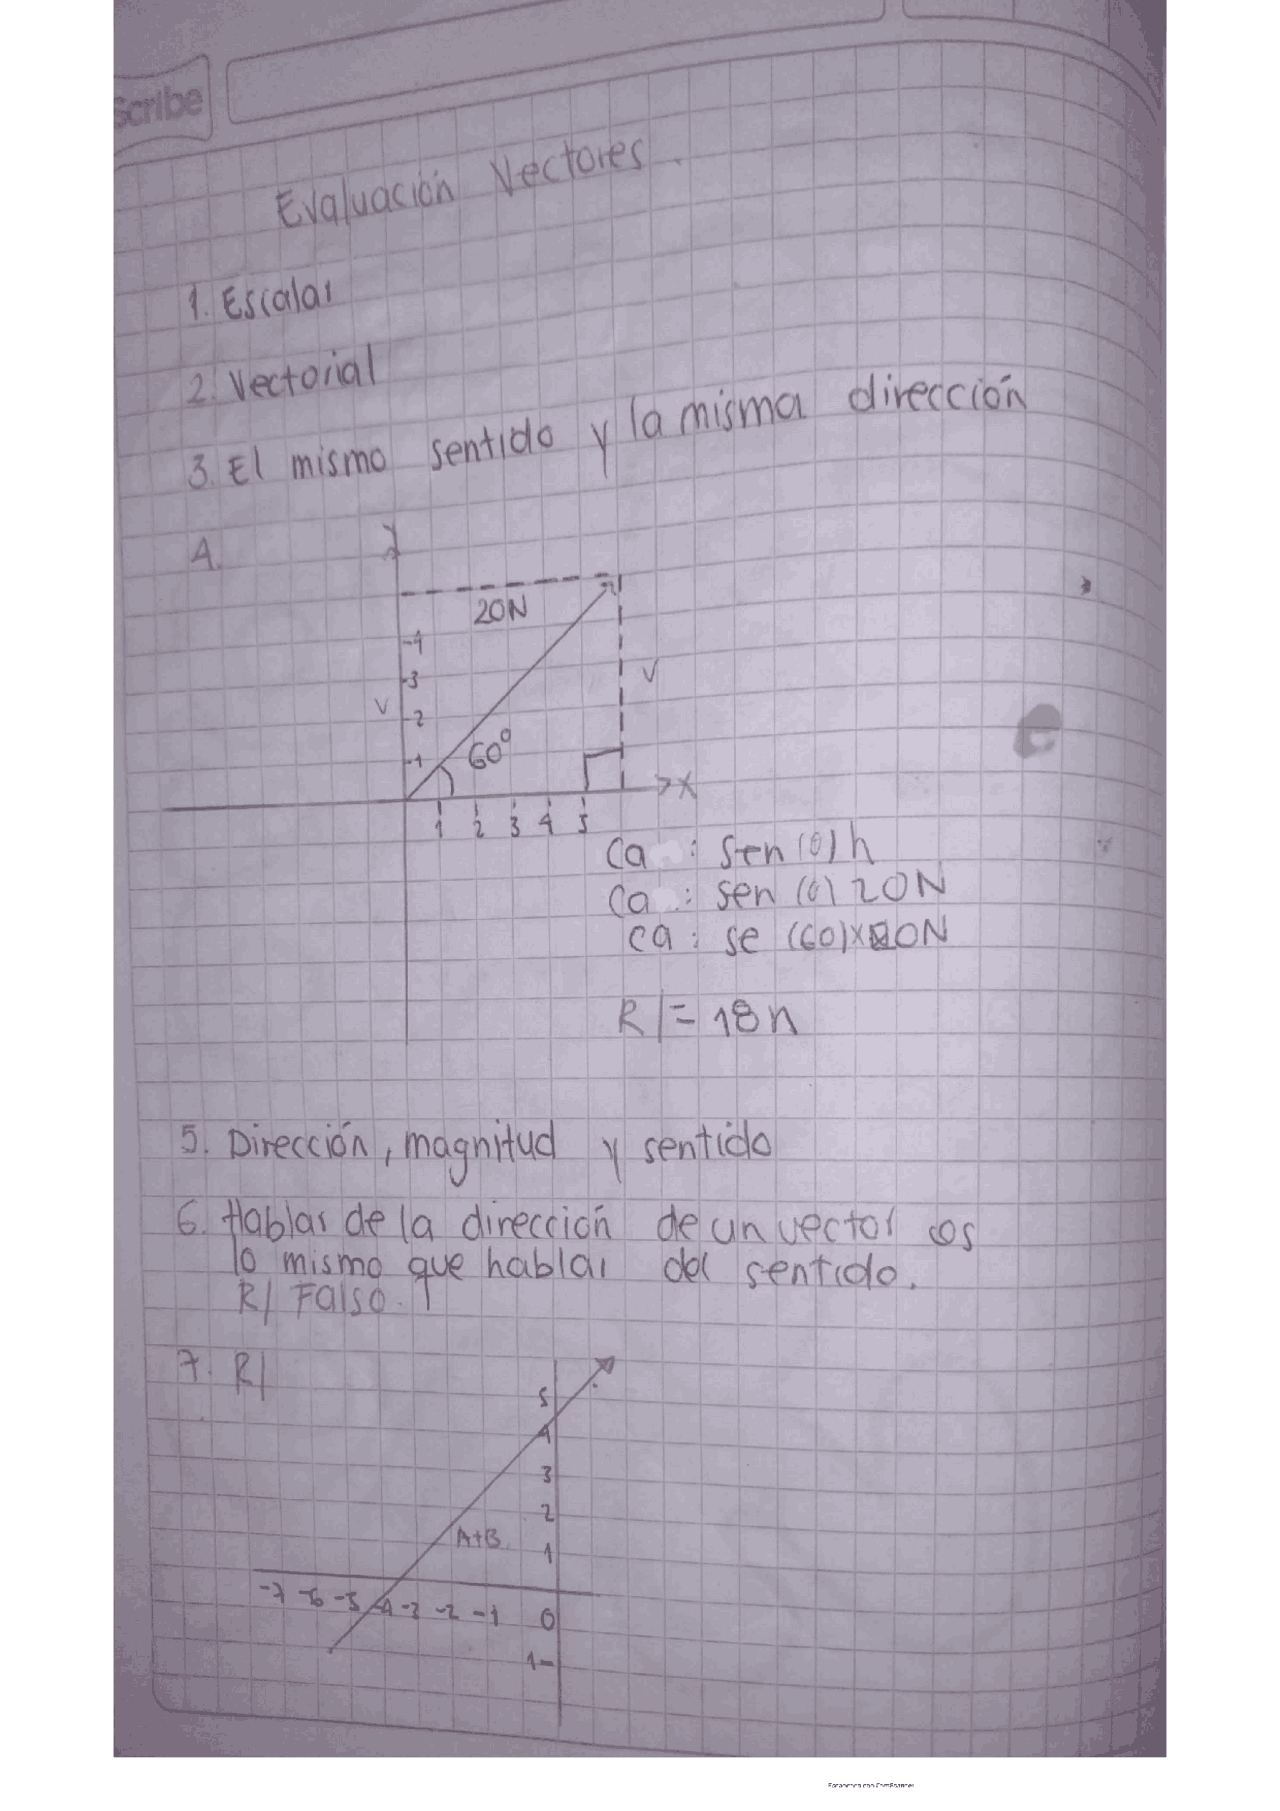 Scribe
Evaluación Vectores.
1. Escalar
2. Vectorial
3. El mismo sentido y la misma dirección
4.
y
20N
4
3
V
V
2
60°
1
x
1 2 3 4 5
Ca : Sen (θ) h
Ca : sen (θ) 20N
ca : se (60)x20N
R/= 18n
5. Dirección, magnitud y sentido
6. Hablar de la dirección de un vector es
lo mismo que hablar del sentido.
R/ Falso.
7. R/
5
4
3
2
A+B
1
-7 -6 -5 -4 -3 -2 -1 0
1-
Escaneado con CamScanner